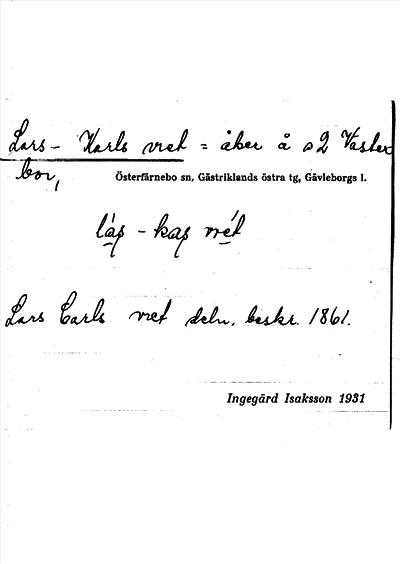 Lars-Karls vret = åker å s2 Väster
bor,
Österfärnebo sn, Gästriklands östra tg, Gävleborgs l.
Lars Carls vret deln. beskr. 1861.
Ingegärd Isaksson 1931